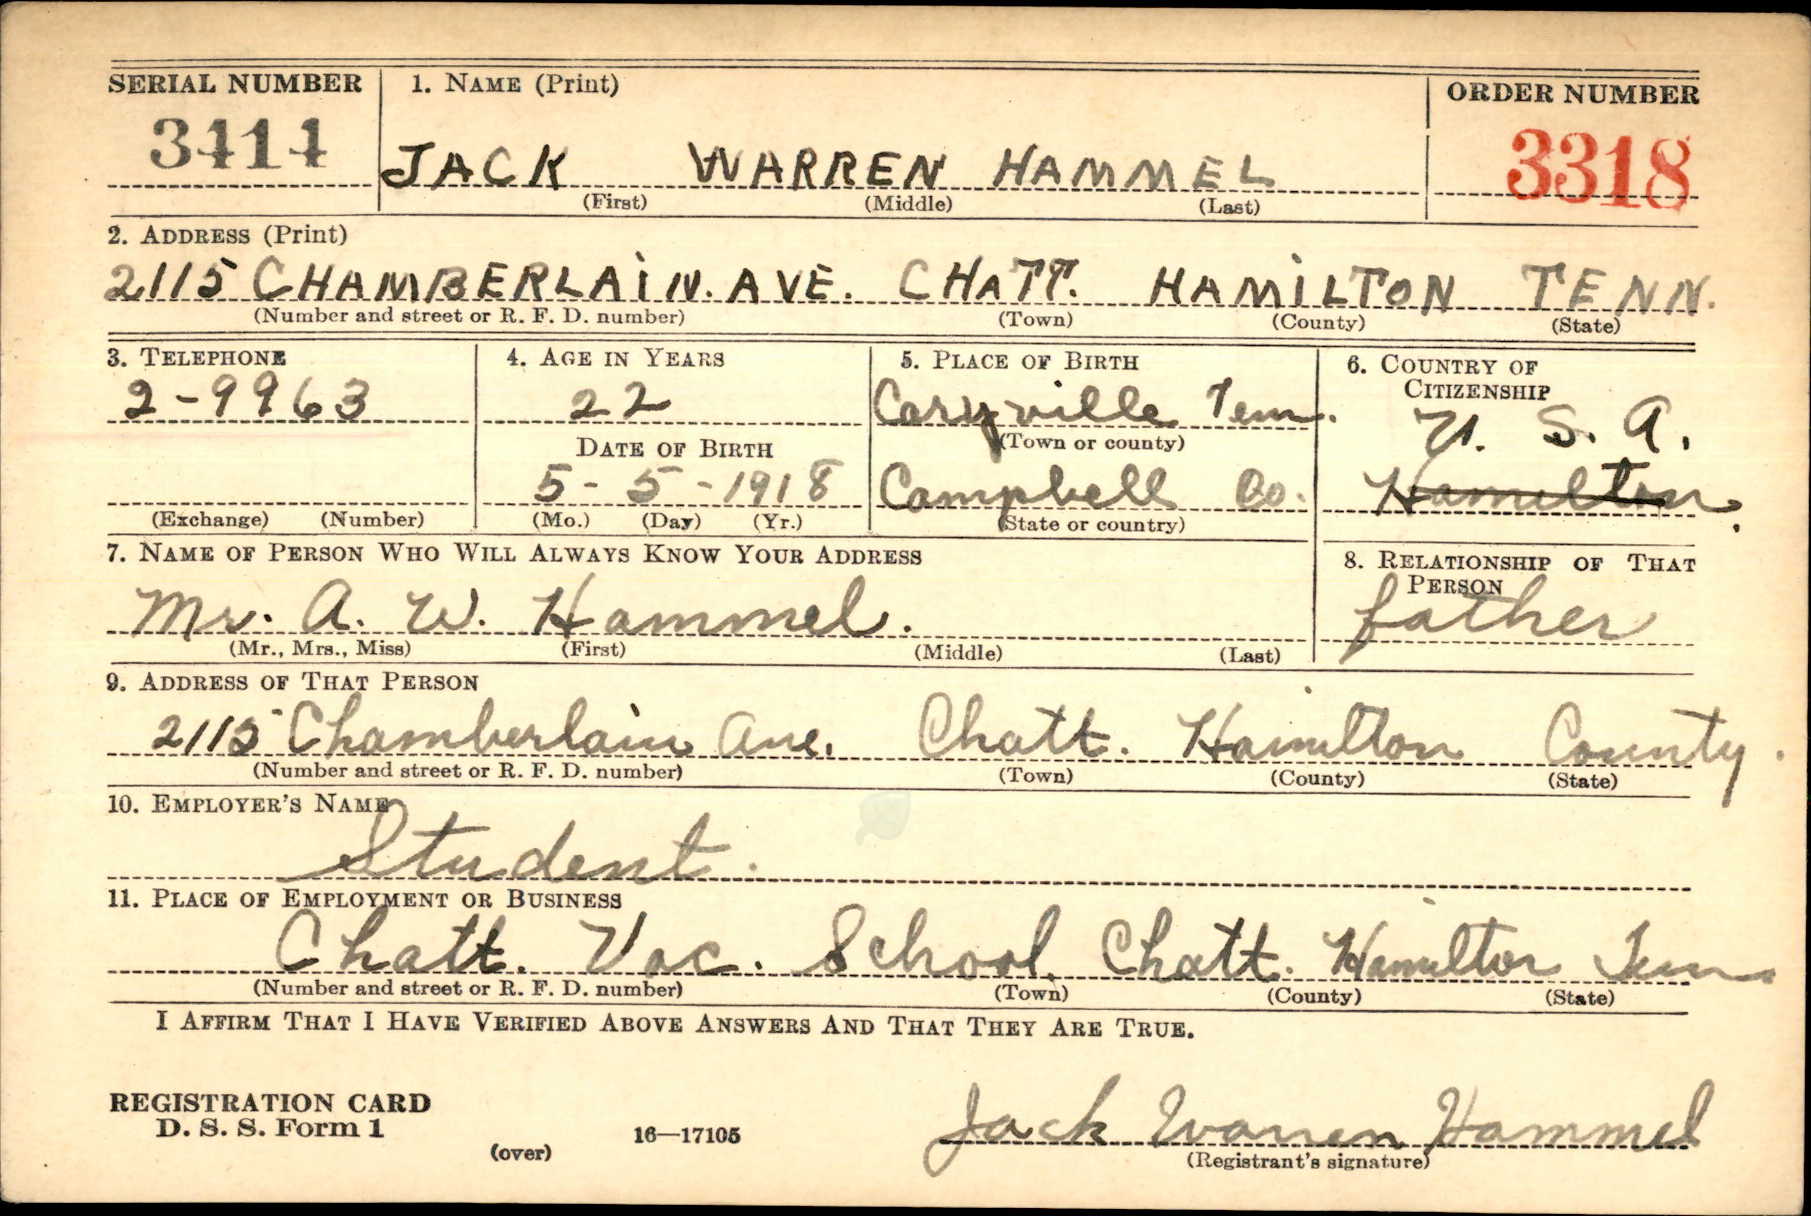 SERIAL NUMBER 1. NAME (Print) ORDER NUMBER
3414 JACK WARREN HAMMEL 3318
(First) (Middle) (Last)
2. ADDRESS (Print)
2115 CHAMBERLAIN. AVE. CHATT. HAMILTON TENN.
(Number and street or R. F. D. number) (Town) (County) (State)
3. TELEPHONE 4. AGE IN YEARS 5. PLACE OF BIRTH 6. COUNTRY OF CITIZENSHIP
2-9963 22 Caryville Tenn. U. S. A.
DATE OF BIRTH (Town or county)
5-5-1918 Campbell Co. Hamilton
(Exchange) (Number) (Mo.) (Day) (Yr.) (State or country)
7. NAME OF PERSON WHO WILL ALWAYS KNOW YOUR ADDRESS 8. RELATIONSHIP OF THAT PERSON
Mr. A. W. Hammel. father
(Mr., Mrs., Miss) (First) (Middle) (Last)
9. ADDRESS OF THAT PERSON
2115 Chamberlain Ave. Chatt. Hamilton County.
(Number and street or R. F. D. number) (Town) (County) (State)
10. EMPLOYER'S NAME
Student.
11. PLACE OF EMPLOYMENT OR BUSINESS
Chatt. Voc. School. Chatt. Hamilton Tenn.
(Number and street or R. F. D. number) (Town) (County) (State)
I AFFIRM THAT I HAVE VERIFIED ABOVE ANSWERS AND THAT THEY ARE TRUE.
REGISTRATION CARD
D. S. S. Form 1
(over) 16—17105
Jack Warren Hammel
(Registrant's signature)